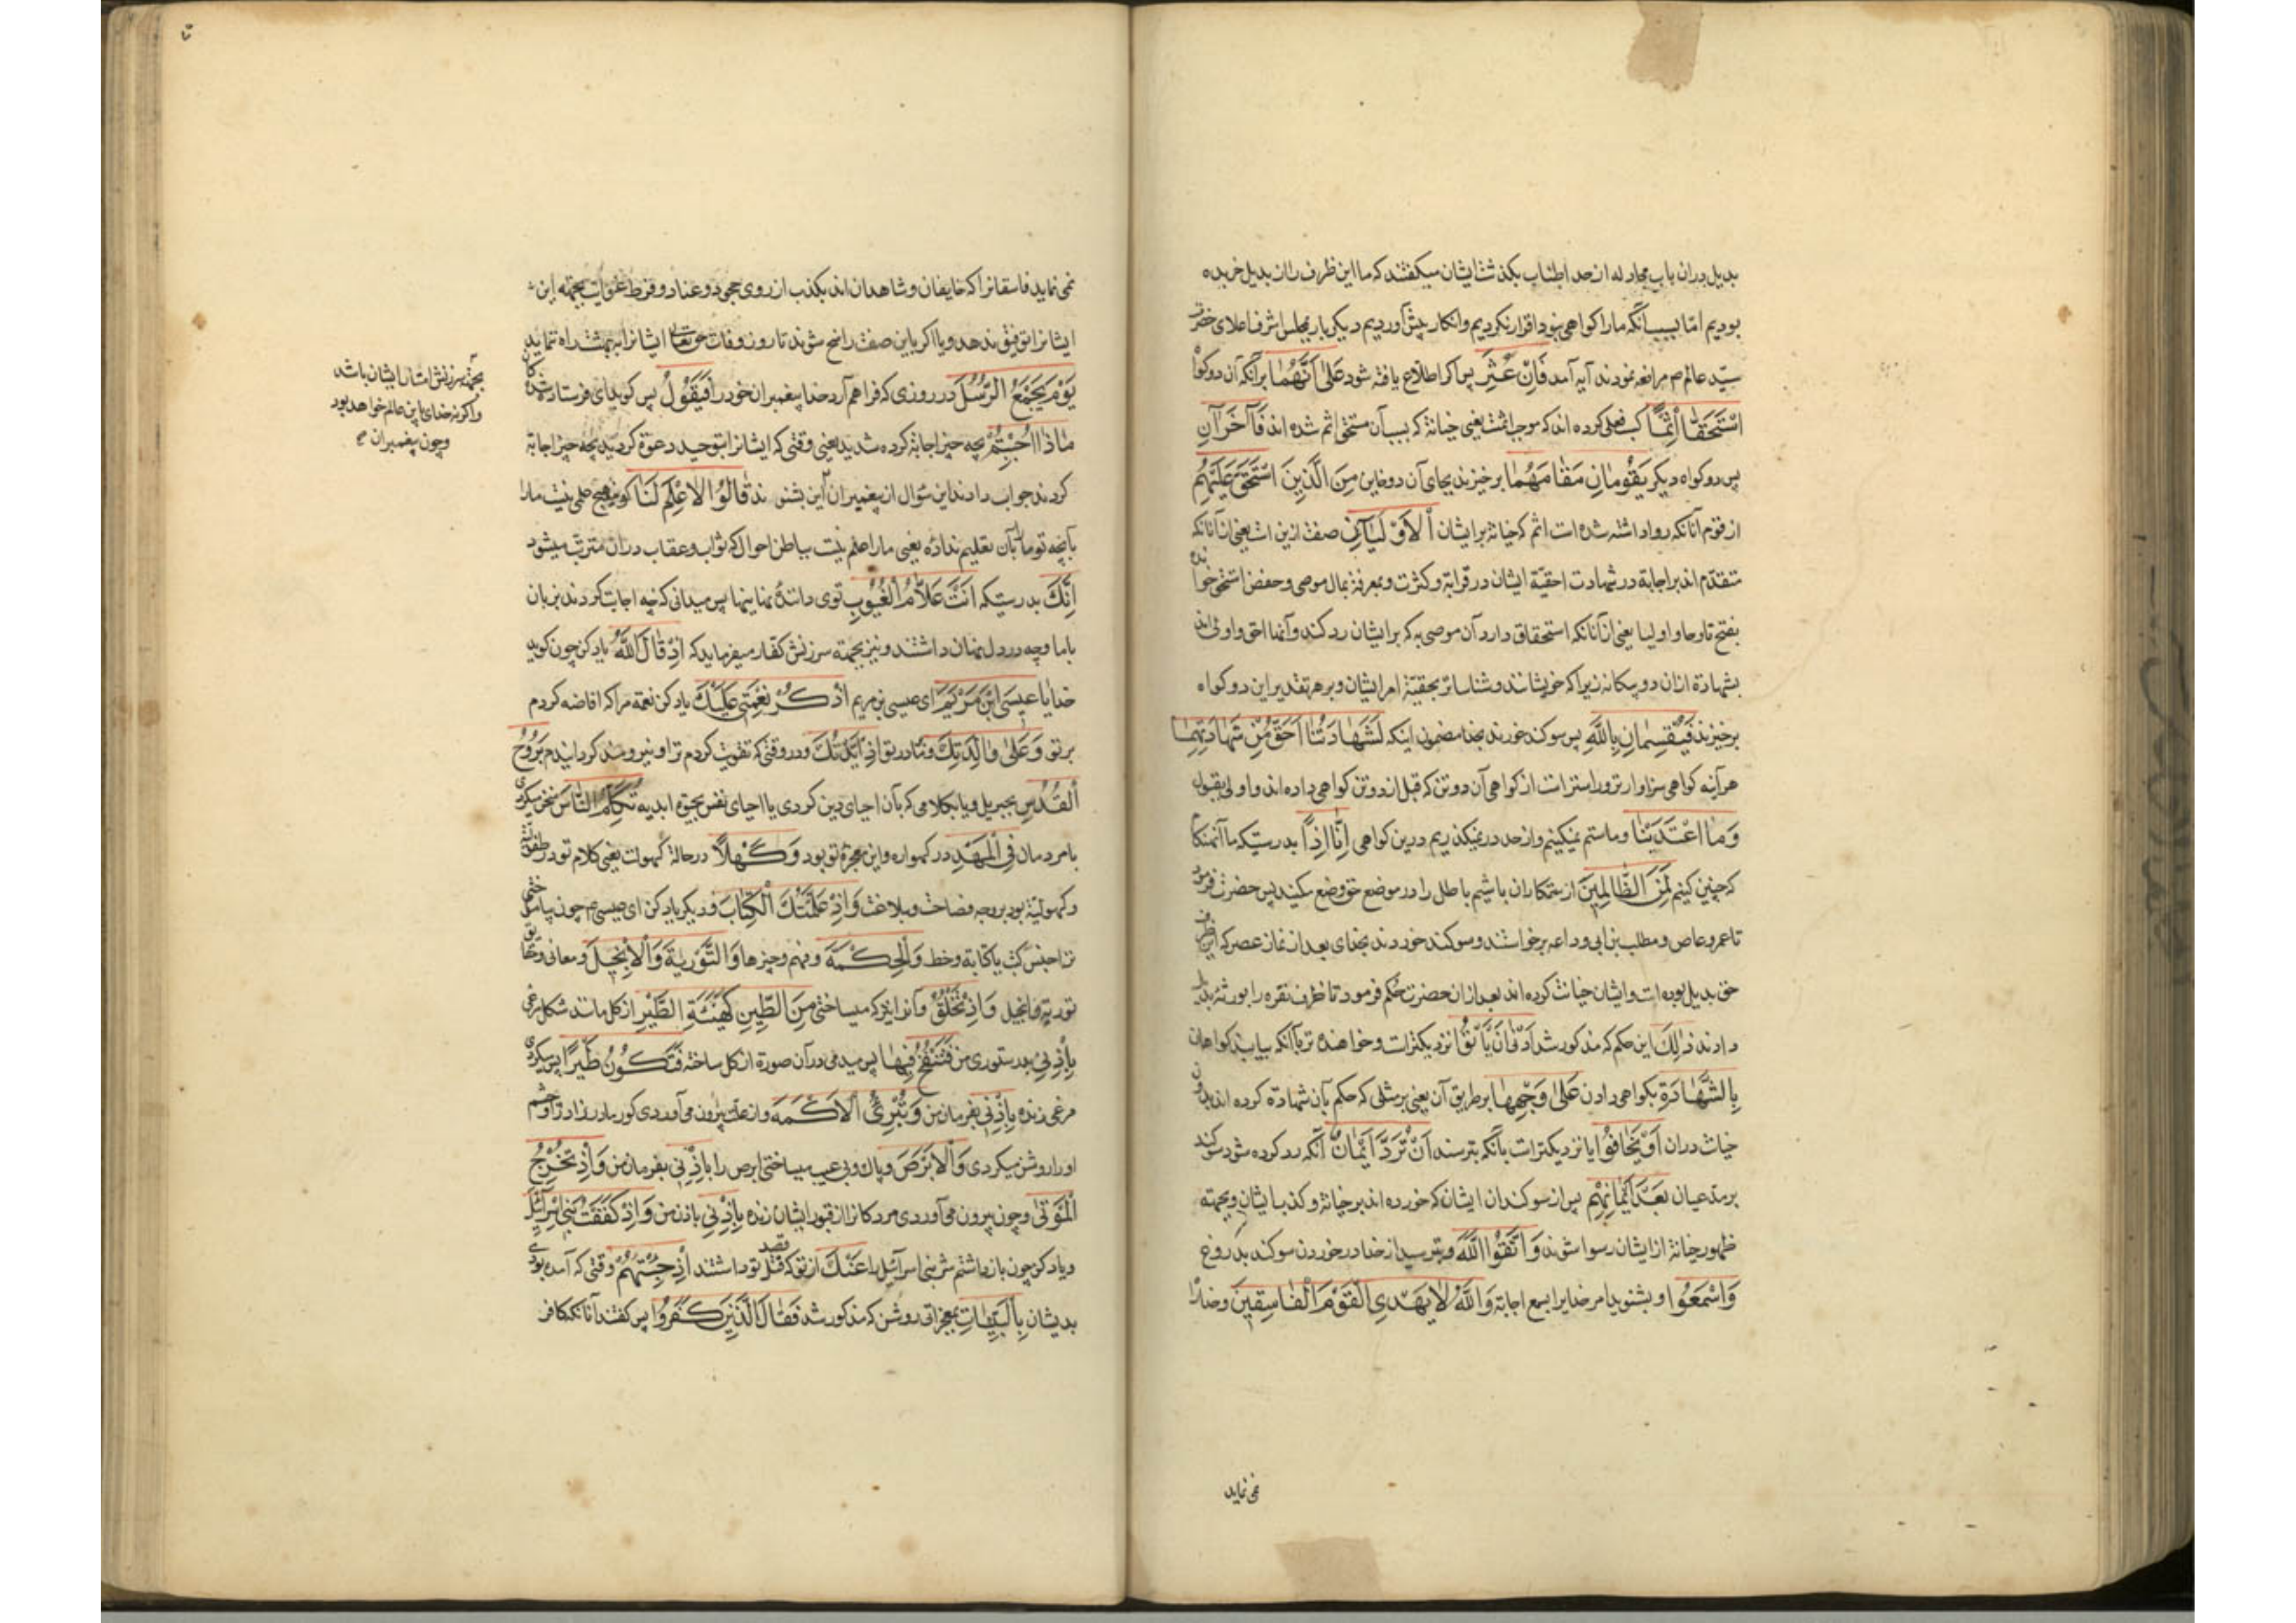 بدیل دران باب مجادله از حد اطناب بگذشت ایشان میگفتند که ما این ظرف را از بدیل خریده
بودیم امّا بسبب آنکه ما را گواهی نبود اقرار نکردیم وانکار پیش آوردیم دیگر بار بمجلس اشرف اعلای حضرت
سیّد عالم ص مرافعه نمودند آیه آمد فَاِنْ عُثِرَ پس اگر اطلاع یافته شود عَلٰی اَنَّهُمَا برآنکه آن دو گواه
اسْتَحَقَّا اِثْمًا کسب فعلی کرده اند که موجب اثمست یعنی خیانة که بسبب آن مستحق اثم شده اند فَآخَرَانِ
پس دو گواه دیگر یَقُومَانِ مَقَامَهُمَا برخیزند بجای آن دو خاین مِنَ الَّذِینَ اسْتَحَقَّ عَلَیْهِمُ
از قوم آنانکه روا داشته شده است اثم که خیانة بر ایشان الْاَوْلَیَانِ صفت ازین است یعنی از آنانکه
متقدّم اند بر اجابة در شهادت احقیّة ایشان در قرابة و کثرت و معرفة بمال موصی وحفض استحق خوانده
بفتح تا وحا و اولیا یعنی از آنانکه استحقاق دارد آن موصی به که بر ایشان رد کند وآنها احق واولی اند
بشهادة ازان دو بیکانه زیرا که خویشانند وشناساتر بحقیّة امر ایشان وبرهر تقدیر این دو گواه
برخیزند فَیُقْسِمَانِ بِاللّٰهِ پس سوکند خورند بخدا مضمون اینکه لَشَهَادَتُنَا اَحَقُّ مِنْ شَهَادَتِهِمَا
هرآینه گواهی ما سزاوارتر وراسترات از گواهی آن دو تن که قبل ازدو تن گواهی داده اند واولی بقبول
وَمَا اعْتَدَیْنَا وما ستم نمیکنیم واز حد درنمیکذریم درین گواهی اِنَّا اِذًا بدرستیکه ما آنهنکام
که چنین کنیم لَمِنَ الظَّالِمِینَ از ستمکاران باشیم که باطل را در موضع حق وضع میکنند پس حضرت فرمود
تا عمرو عاص ومطلب بن ابی وداعه برخواستند وسوکند خوردند بخدای بعد از نماز عصر که این ظرف
حق بدیل بوده است وایشان خیانت کرده اند بعد ازان حضرت حکم فرمود تا ظرف نقره را بورثه بدیل
دادند ذٰلِكَ این حکم که مذکور شد اَدْنٰی اَنْ یَأْتُوا نزدیکترات وخواهنده تر بآنکه بیایند گواهان
بِالشَّهَادَةِ بکواهی دادن عَلٰی وَجْهِهَا بر طریق آن یعنی بر مثلی که حکم بآن شهادة کرده اند بدون
خیانت دران اَوْ یَخَافُوا یا نزدیکترات بآنکه بترسند اَنْ تُرَدَّ اَیْمَانٌ آنکه رد کرده شود سوکند
بر مدعیان بَعْدَ اَیْمَانِهِمْ پس از سوکندان ایشان که خورده اند بر خیانة وکذب ایشان وبجهته
ظهور خیانة از ایشان رسوا شوند وَاتَّقُوا اللّٰهَ وبترسید از خدا در خوردن سوکند بدروغ
وَاسْمَعُوا وبشنوید امر خدایرا بسمع اجابة وَاللّٰهُ لَا یَهْدِی الْقَوْمَ الْفَاسِقِینَ وخدا راه
نمی نماید
نمی نماید فاسقانرا که خایفان وشاهدان اند بکذب از روی جحود وعناد وفرط غوایت بجهته این
ایشانرا توفیق ندهد ویا اگر باین صفت راسخ شوند تا روز وفات حق تعالی ایشانرا ببهشت راه ننماید
یَوْمَ یَجْمَعُ اللّٰهُ الرُّسُلَ در روزی که فراهم آرد خدا پیغمبران خود را فَیَقُولُ پس کوید ای فرستاده شدکان
مَاذَا اُجِبْتُمْ بچه چیز اجابة کرده شدید یعنی وقتی که ایشانرا بتوحید دعوة کردید بچه چیز اجابة
کردند جواب دادند این سؤال از پیغمبران این بشنوند قَالُوا لَا عِلْمَ لَنَا کویند هیچ علمی نیست ما را
بآنچه تو ما را بآن تعلیم نداده یعنی ما را علم نیست بباطن احوال که ثواب وعقاب دران مترتب میشود
اِنَّكَ بدرستیکه اَنْتَ عَلَّامُ الْغُیُوبِ توی دانندۀ نهانیها پس میدانی که چه اجابت کردند بزبان
با ما وچه در دل نهان داشتند ونیز بجهته سرزنش کفار میفرماید که اِذْ قَالَ اللّٰهُ یاد کن چون کوید
خدا یَا عِیسَی ابْنَ مَرْیَمَ ای عیسی بن مریم اذْکُرْ نِعْمَتِی عَلَیْكَ یاد کن نعمة مرا که افاضه کردم
بر تو وَعَلٰی وَالِدَتِكَ وبمادر تو اِذْ اَیَّدْتُكَ ودر وقتی که تقویت کردم ترا ونیرومند کردانیدم بِرُوحِ
الْقُدُسِ بجبریل ویا بکلامی که بآن احیای دین کردی یا احیای نفس بحیوة ابدیه تُکَلِّمُ النَّاسَ سخن میکردی
با مردمان فِی الْمَهْدِ در کهواره واین معجزۀ تو بود وَکَهْلًا در حالة کهولت یعنی کلام تو در طفولیّة
وکهولیّة بود بر وجه فصاحت وبلاغت وَاِذْ عَلَّمْتُكَ الْکِتَابَ ودیکر یاد کن ای عیسی ع چون بیاموختی
ترا جنس کتب یا کتابة وخط وَالْحِکْمَةَ وفهم چیزها وَالتَّوْرٰیةَ وَالْاِنْجِیلَ ومعانی وحقایق
توریة وانجیل وَاِذْ تَخْلُقُ وآنرا نیز که میساختی مِنَ الطِّینِ کَهَیْئَةِ الطَّیْرِ از کل مانند شکل مرغی
بِاِذْنِی بدستوری من فَتَنْفُخُ فِیهَا پس میدمی در آن صورة از کل ساخته فَتَکُونُ طَیْرًا پس میکردی
مرغی زنده بِاِذْنِی بفرمان من وَتُبْرِئُ الْاَکْمَهَ واز علت بیرون می آوردی کور مادرزاد را وچشم
او را روشن میکردی وَالْاَبْرَصَ وپاك وبی عیب میساختی ابرص را بِاِذْنِی بفرمان من وَاِذْ تُخْرِجُ
الْمَوْتٰی وچون بیرون می آوردی مردکانرا از قبور ایشان زنده بِاِذْنِی باذن من وَاِذْ کَفَفْتُ بَنِی اِسْرَائِیلَ
ویاد کن چون باز داشتم شر بنی اسرائیل را عَنْكَ از تو که قصد قتل تو داشتند اِذْ جِئْتَهُمْ وقتی که آمده بودی
بدیشان بِالْبَیِّنَاتِ بمعجزاتی روشن که مذکور شد فَقَالَ الَّذِینَ کَفَرُوا پس کفتند آنانکه کافر
بجهتۀ سرزنش امتان ایشان باشد
واگر نه خدای باین عالم خواهد بود
وچون پیغمبران